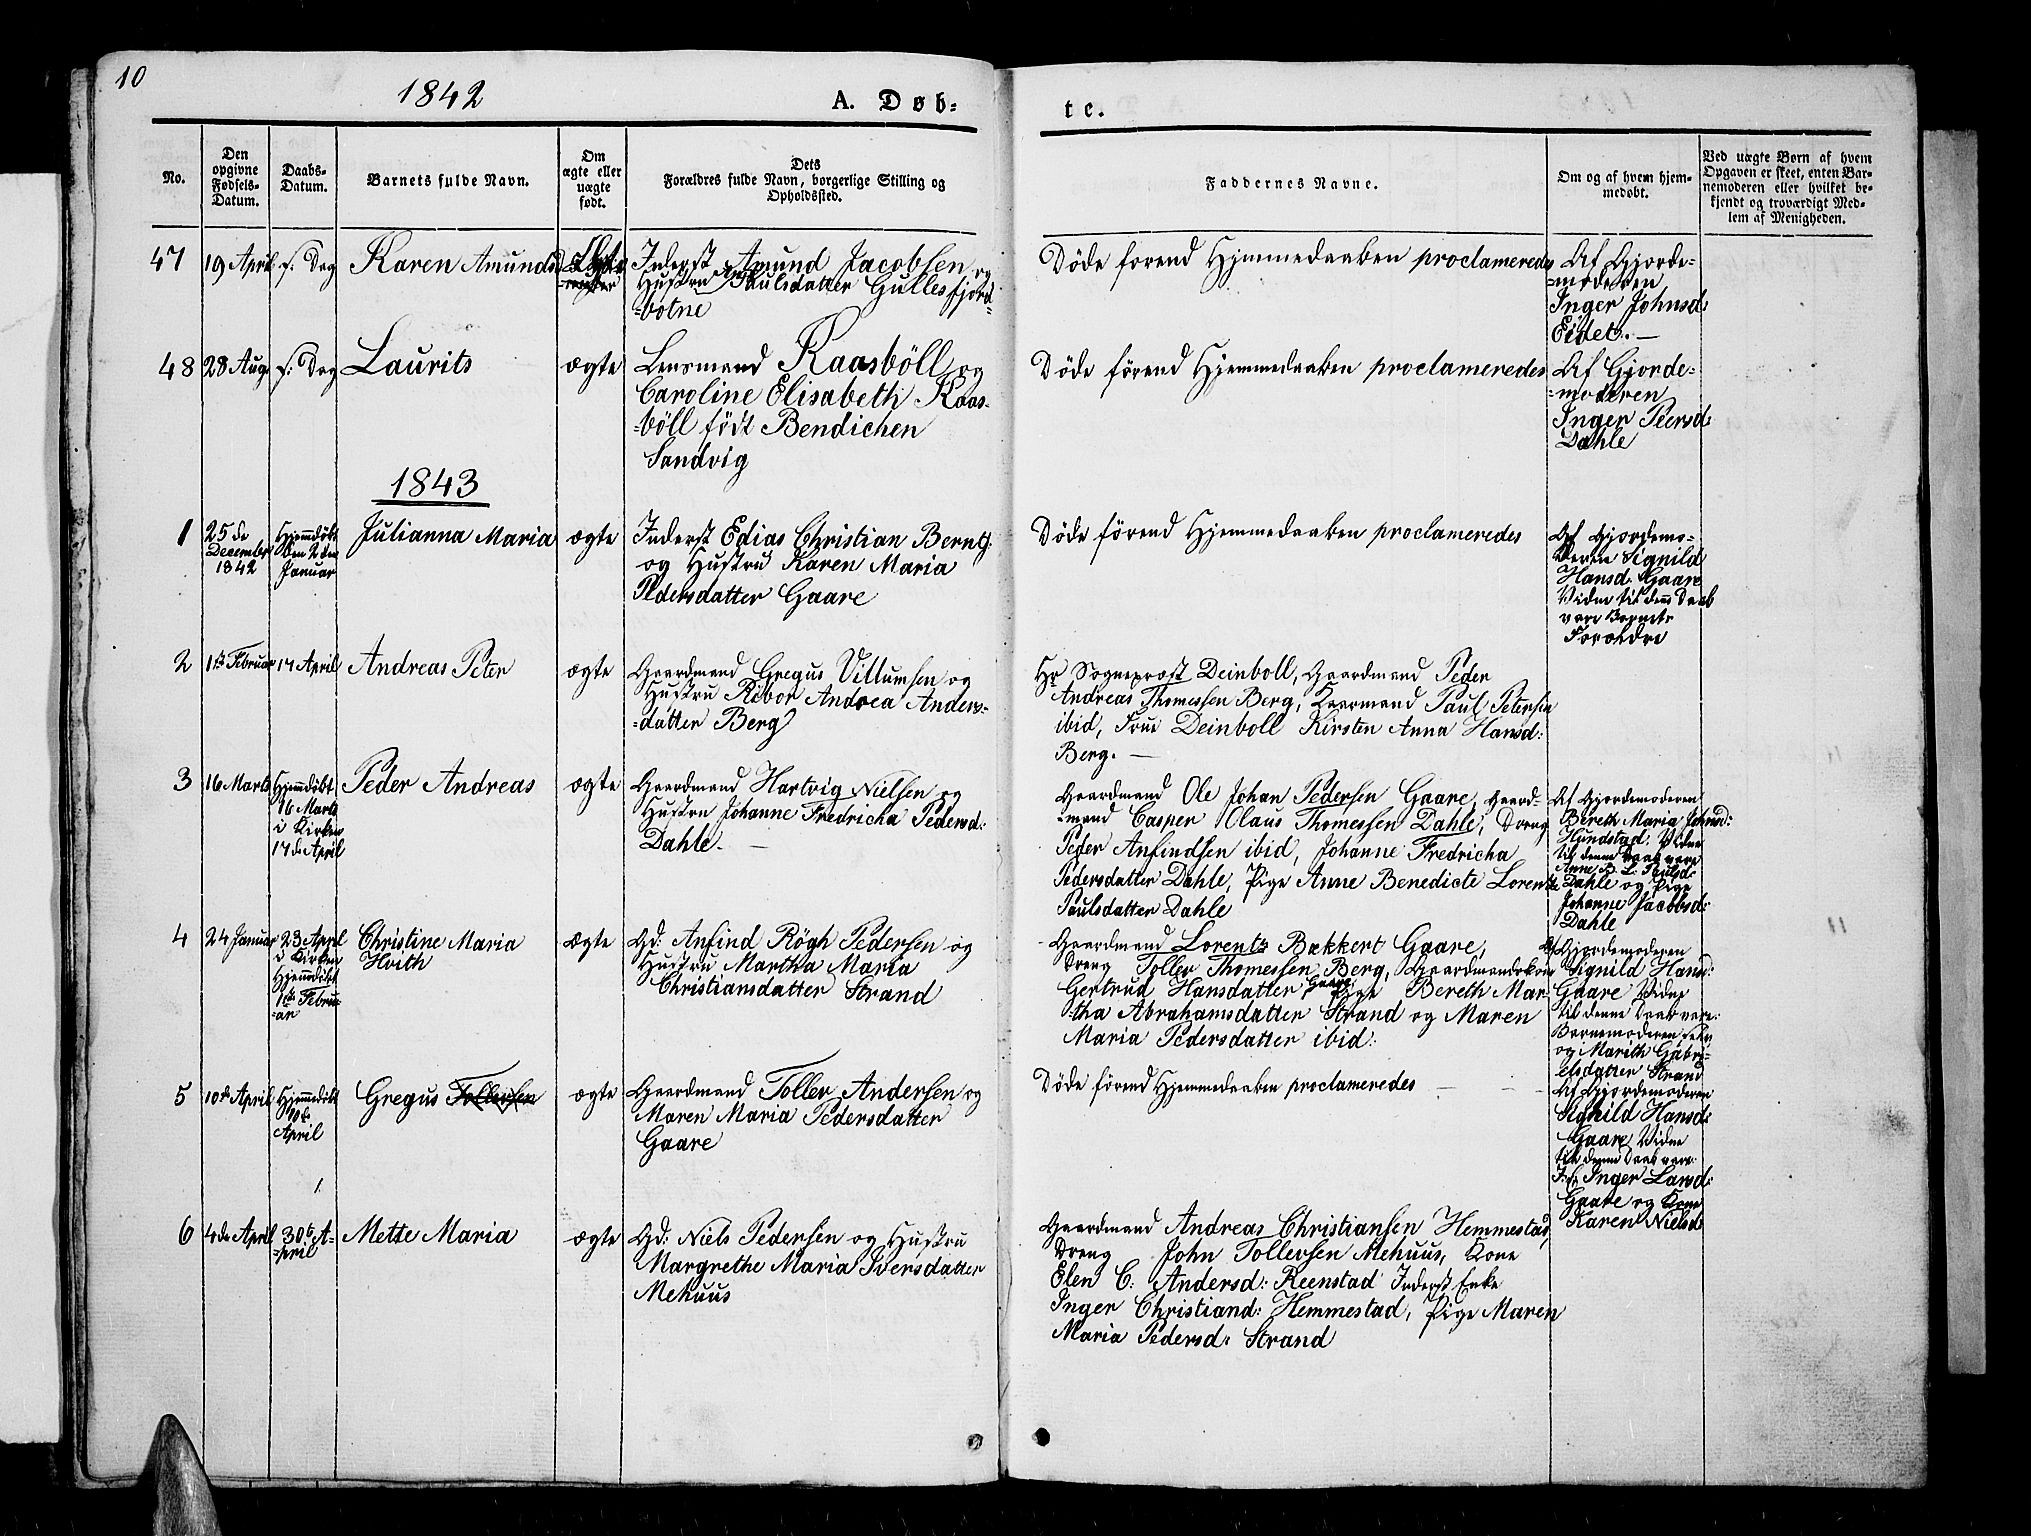 10
1842
A. Døb=
te.
No.
Den
opgivne
Fødsels-
Datum.
Daabs-
Datum.
Barnets fulde Navn.
Om
ægte eller
uægte
født.
Dets
Forældres fulde Navn, borgerlige Stilling og
Opholdssted.
Faddernes Navne.
Om og af hvem hjem-
medøbt.
Ved uægte Børn af hvem
Opgaven er skeet, enten Bar-
nemoderen eller hvilket be-
kjendt og troværdigt Med-
lem af Menigheden.
47
19 April
s: Dag
Karen Amunds
Inderst Amund Jacobsen og
Hustru Paulsdatter Gullesfjord
=botne
Døde forend Hjemmedaaben proclameredes
Af Gjorde=
=moderen
Inger Johnsd:
Eidet. —
48
28 Aug
s: Dag
Laurits
ægte
Lensmand Kaasböll og
Caroline Elisabeth Kaas-
=böll födt Bendichen
Sandvig
Døde förend Hjemmedaaben proclameredes
Af Gjorde=
=moderen
Inger Peersd:
Dahle
1843
1
25 de
December
1842
Hjemmdöbt
den 2den
Januar
Julianna Maria
ægte
Inderst Edias Christian Berntz:
og Hustru Karen Maria
Pedersdatter Gaare
Døde förend Hjemmedaaben proclameredes
Af Gjordemo-
deren Signild
Hansd. Gaare
Vidne til denne Daab
vare Barnets
Forældre
2
1ste Februar
17 April
Andreas Peter
ægte
Gaardmand Gregus Villumsen og
Hustru Ribor Andrea Anders-
=datter Berg
Hr Sogneprost Deinboll, Gaardmand Peder
Andreas Thomessen Berg, Gaarmand Paul Petersen
ibid, Frue Deinboll Kirsten Anna Hansd:
Berg. —
3
16 Marts
Hjemmdöbt
16 Marts
i Kirken
17de April
Peder Andreas
ægte
Gaardmand Hartvig Nielsen og
Hustru Johanne Fredricha Pedersd:
Dahle. —
Gaardmand Ole Johan Pedersen Gaare, Gaard-
=mand Casper Olaus Thomessen Dahle, Dreng
Peder Anfindsen ibid, Johanne Fredricha
Pedersdatter Dahle, Pige Anne Benedicte Lorentze
Paulsdatter Dahle
Af Gjordemoderen
Bereth Maria Johnsd:
Hundstad. Vidne
til denne Daab vare
Anne B. L. Paulsd:
Dahle og Pige
Johanne Jacobsd:
Dahle
4
24 Januar
23 April
i Kirken
Hjemmdöbt
1ste Febru-
=ar
Christine Maria
Hvith
Ægte
Gd: Anfind Rögh Pedersen og
Hustru Martha Maria
Christiansdatter Strand
Gaardmand Lorentz Bækkert Gaare,
Dreng Toller Thomessen Berg, Gaardmandskone
Gertrud Hansdatter Gaare, Pige Bereth Mar-
=tha Abrahamsdatter Strand og Maren
Maria Pedersdatter ibid:
Af Gjordemoderen
Signild Hansd:
Gaare Vidne
til denne Daab vare:
Barnemoderen selv
og Marith Gabri-
elsdatter Strand
5
10de April
Hjemmedöbt
10de
April
Gregus Tollevsen
ægte
Gaardmand Toller Andersen og
Maren Maria Pedersdatter
Gaare
Døde förend Hjemmedaaben proclameredes
Af Gjordemoderen
Signild Hansd:
Gaare, Vidne
til denne Daab vare:
Inger Larsd:
Gaare og Kone
Karen Nielsd:
6
4de April
30te A-
=pril
Mette Maria
ægte
Gd: Niels Pedersen og Hustru
Margrethe Maria Iversdatter
Mehuus
Gaardmand Andreas Christiansen Hemmestad,
Dreng John Tollevsen Mehuus, Kone
Elen C: Andersd: Reenstad Inderst Enke
Inger Christiand: Hemmestad, Pige Maren
Maria Pedersd: Strand